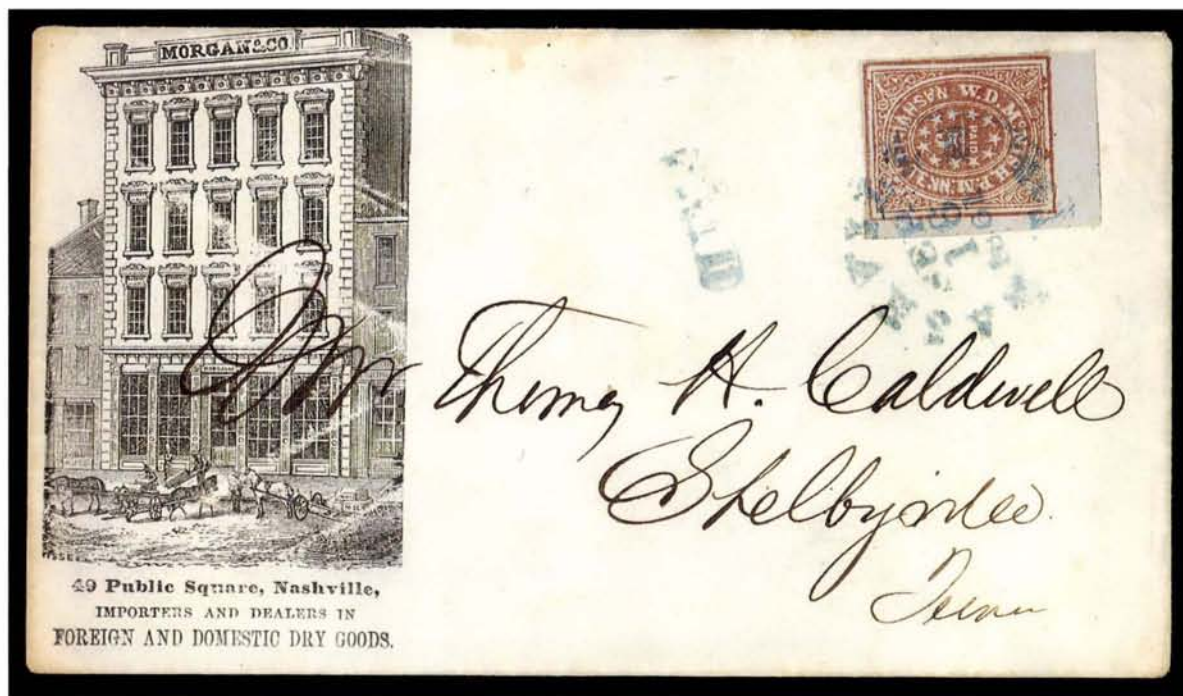 MORGAN & CO
49 Public Square, Nashville,
IMPORTERS AND DEALERS IN
FOREIGN AND DOMESTIC DRY GOODS.
PAID
W. D. McNISH P.M. NASHVILLE
PAID
Thomas H. Caldwell
Shelbyville
Tenn